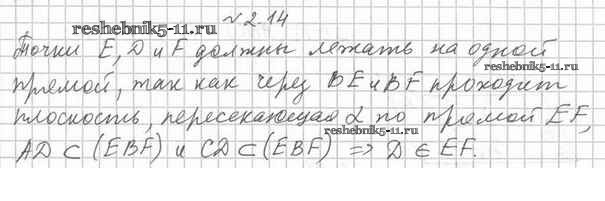 № 2.14
reshebnik5-11.ru
Точки E, D и F должны лежать на одной
reshebnik5-11.ru
прямой, так как через BE и BF проходит
плоскость, пересекающая α по прямой EF,
reshebnik5-11.ru
AD ⊂ (EBF) и CD ⊂ (EBF) => D ∈ EF.
reshebnik5-11.ru